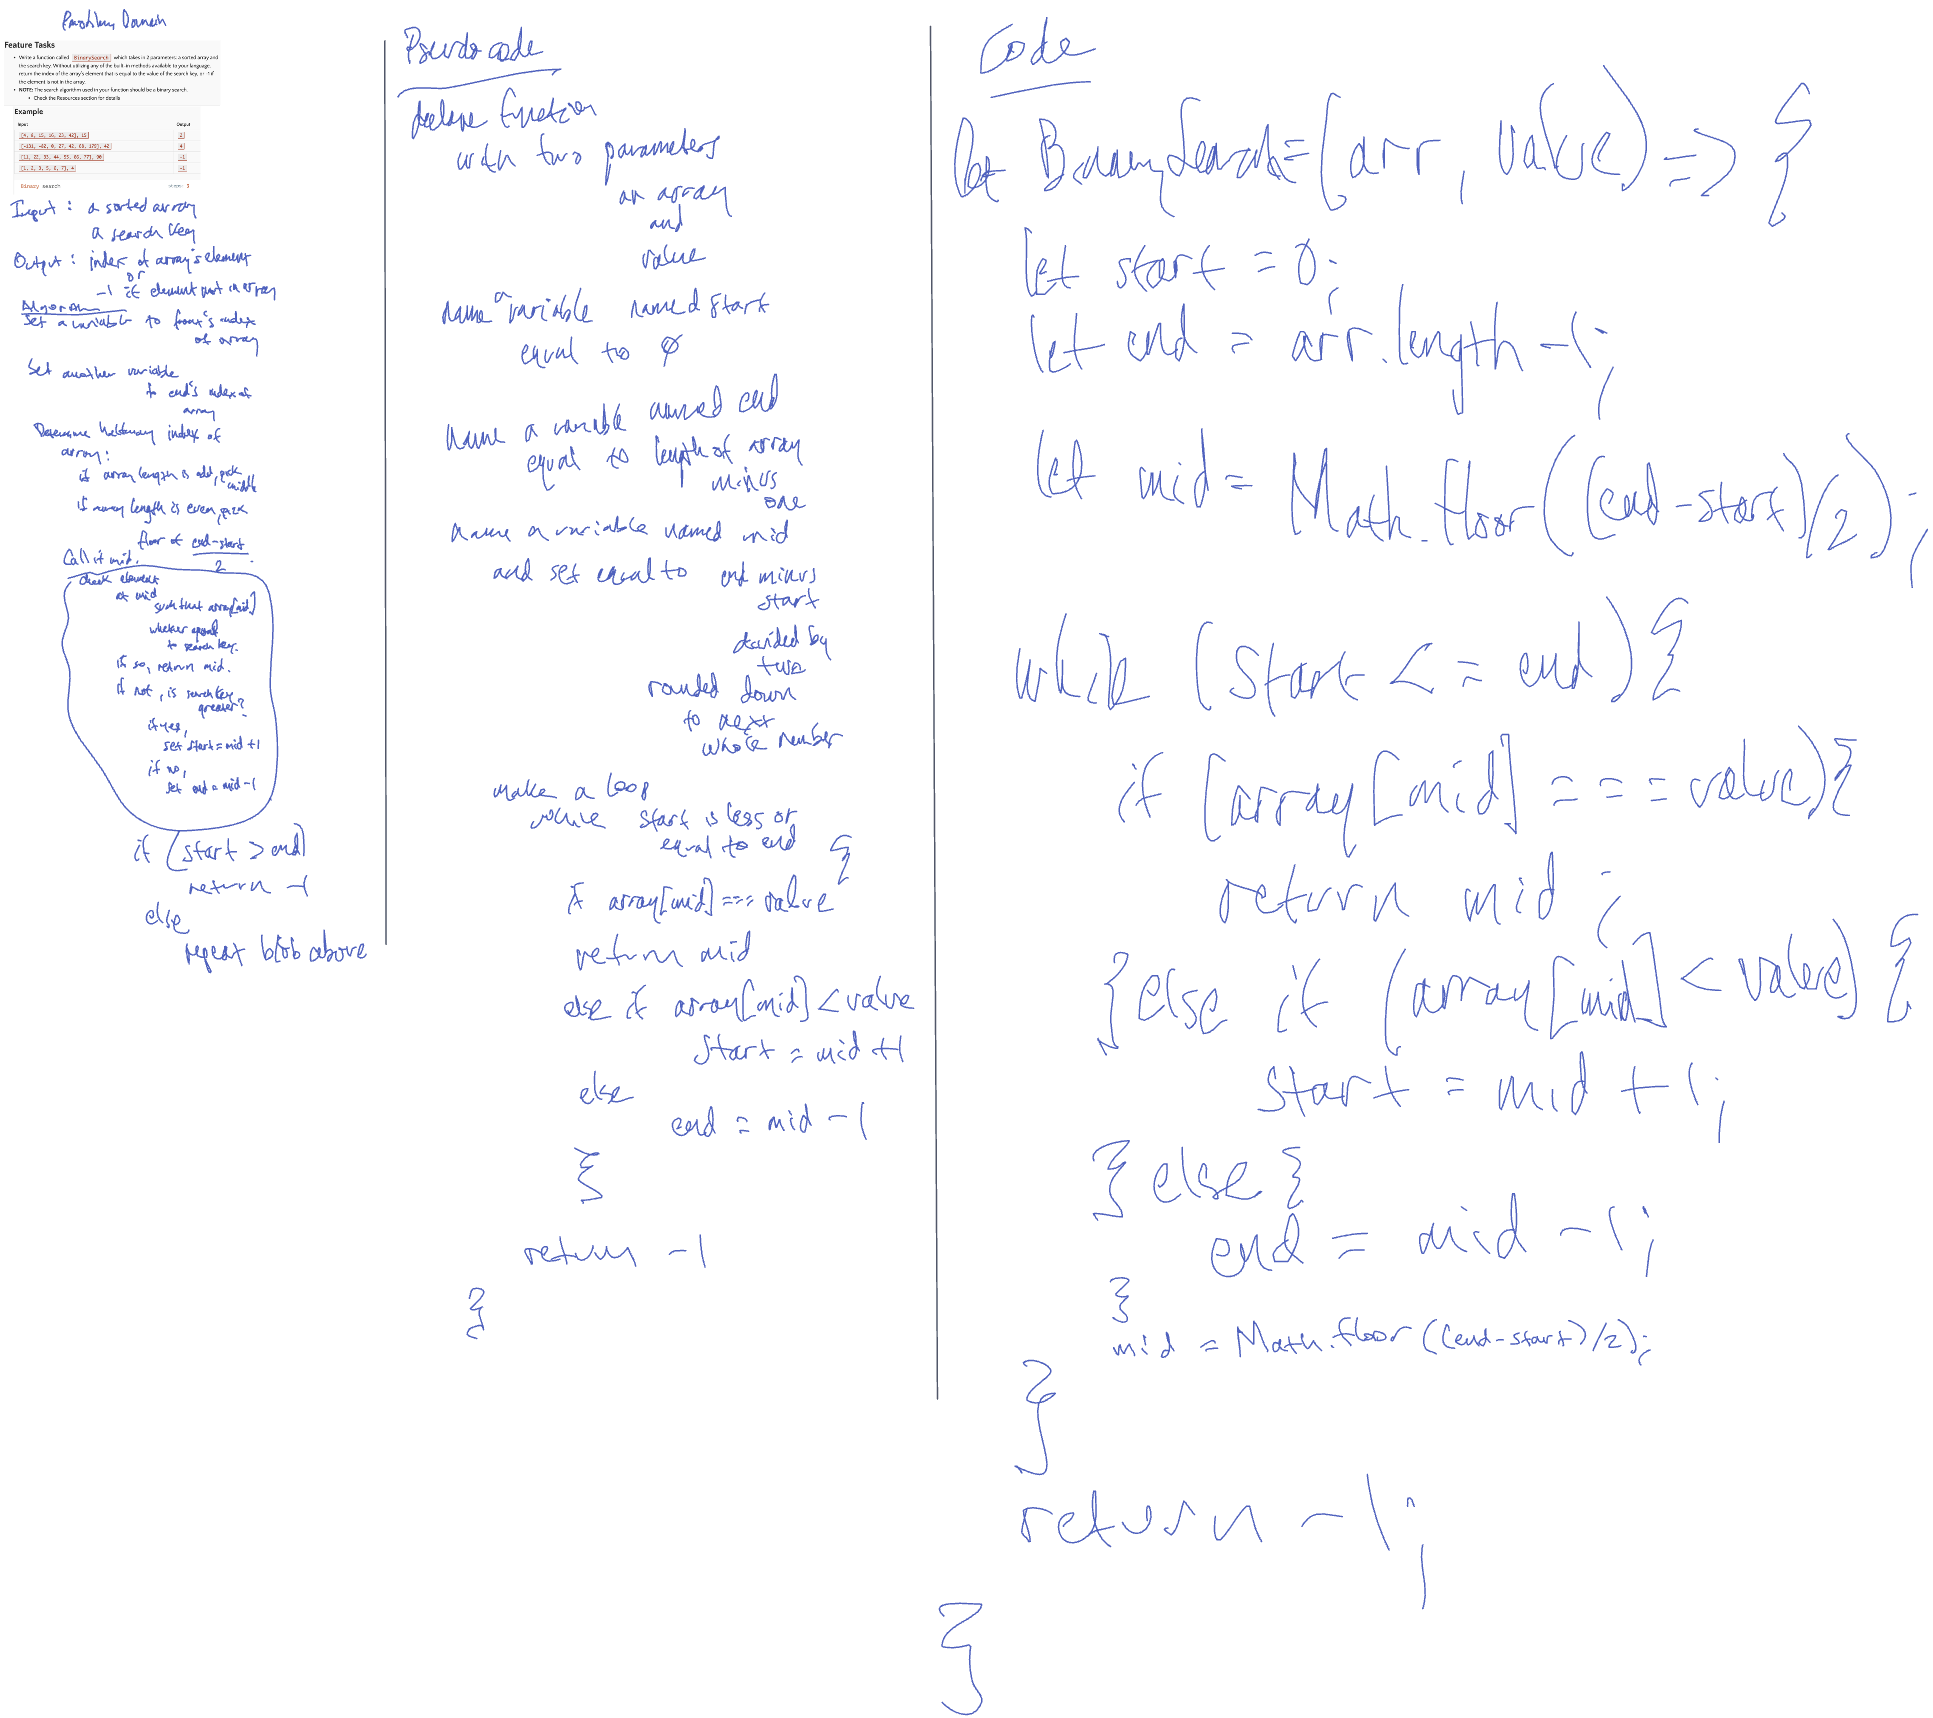 Problem Domain
Feature Tasks
Write a function called BinarySearch which takes in 2 parameters: a sorted array and
the search key. Without utilizing any of the built-in methods available to your language,
return the index of the array's element that is equal to the value of the search key, or -1 if
the element is not in the array.
NOTE: The search algorithm used in your function should be a binary search.
Check the Resources section for details
Example
Input Output
[4, 8, 15, 16, 23, 42], 15 2
[-131, -82, 0, 27, 42, 68, 179], 42 4
[11, 22, 33, 44, 55, 66, 77], 90 -1
[1, 2, 3, 5, 6, 7], 4 -1
Binary search steps: 3
Input : a sorted array
a search key
Output : index of array's element
or
-1 if element not in array
Set a variable to front's index
of array
Set another variable
to end's index of
array
Determine halfway index of
array:
if array length is odd, pick
middle
if array length is even, pick
floor of end-start
2
Call it mid.
check element
at mid
such that array[mid]
whether equal
to search key.
if so, return mid.
if not, is search key
greater?
if yes,
set start = mid +1
if no,
set end = mid -1
if (start > end)
return -1
else
repeat blob above
Pseudo code
declare function
with two parameters
an array
and
value
name a variable named start
equal to 0
name a variable named end
equal to length of array
minus
one
name a variable named mid
and set equal to end minus
start
divided by
two
rounded down
to next
whole number
make a loop
while start is less or
equal to end {
if array[mid] === value
return mid
else if array[mid] < value
start = mid +1
else
end = mid -1
}
return -1
}
Code
let BinarySearch = (arr, value) => {
let start = 0;
let end = arr.length -1;
let mid = Math.floor((end - start)/2);
while (start <= end) {
if (array[mid] === value){
return mid ;
} else if (array[mid] < value) {
start = mid + 1;
} else {
end = mid - 1;
}
mid = Math.floor((end-start)/2);
}
return -1;
}